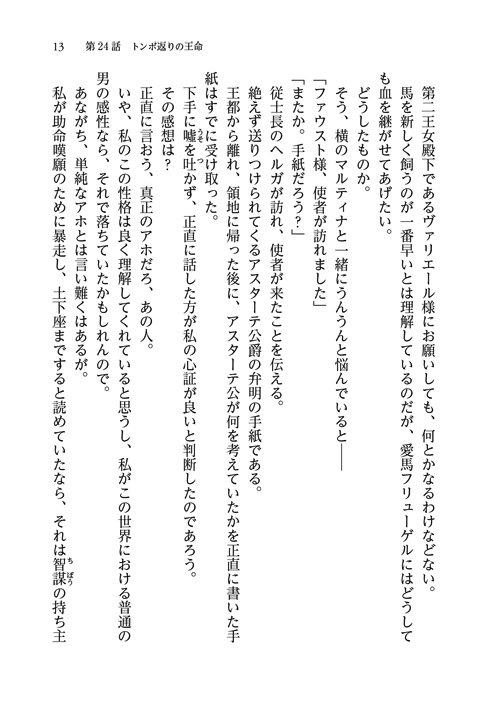 13　第24話　トンボ返りの王命
第二王女殿下であるヴァリエール様にお願いしても、何とかなるわけなどない。
馬を新しく飼うのが一番早いとは理解しているのだが、愛馬フリューゲルにはどうして
も血を継がせてあげたい。
どうしたものか。
そう、横のマルティナと一緒にうんうんと悩んでいると――
「ファウスト様、使者が訪れました」
「またか。手紙だろう？」
従士長のヘルガが訪れ、使者が来たことを伝える。
絶えず送りつけられてくるアスターテ公爵の弁明の手紙である。
王都から離れ、領地に帰った後に、アスターテ公が何を考えていたかを正直に書いた手
紙はすでに受け取った。
下手に嘘を吐かず、正直に話した方が私の心証が良いと判断したのであろう。
その感想は？
正直に言おう、真正のアホだろ、あの人。
いや、私のこの性格は良く理解してくれていると思うし、私がこの世界における普通の
男の感性なら、それで落ちていたかもしれんので。
あながち、単純なアホとは言い難くはあるが。
私が助命嘆願のために暴走し、土下座まですると読めていたなら、それは智謀の持ち主